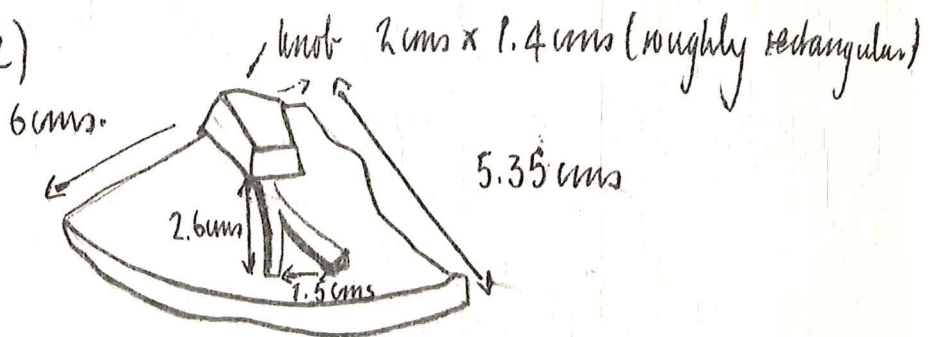 2)
knob 2cms x 1.4cms (roughly rectangular)
6cms.
5.35cms
2.6cms
1.5cms